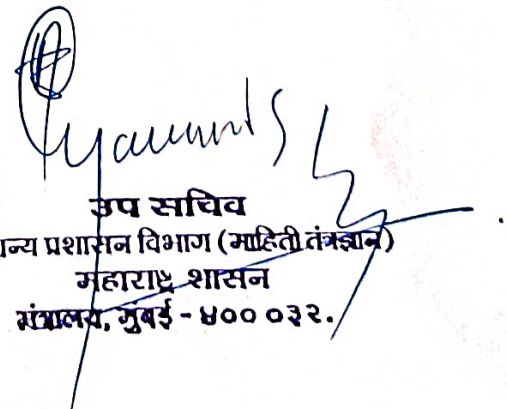 उप सचिव
न्य प्रशासन विभाग (माहिती तंत्रज्ञान)
महाराष्ट्र शासन
मंत्रालय, मुंबई - ४०० ०३२.